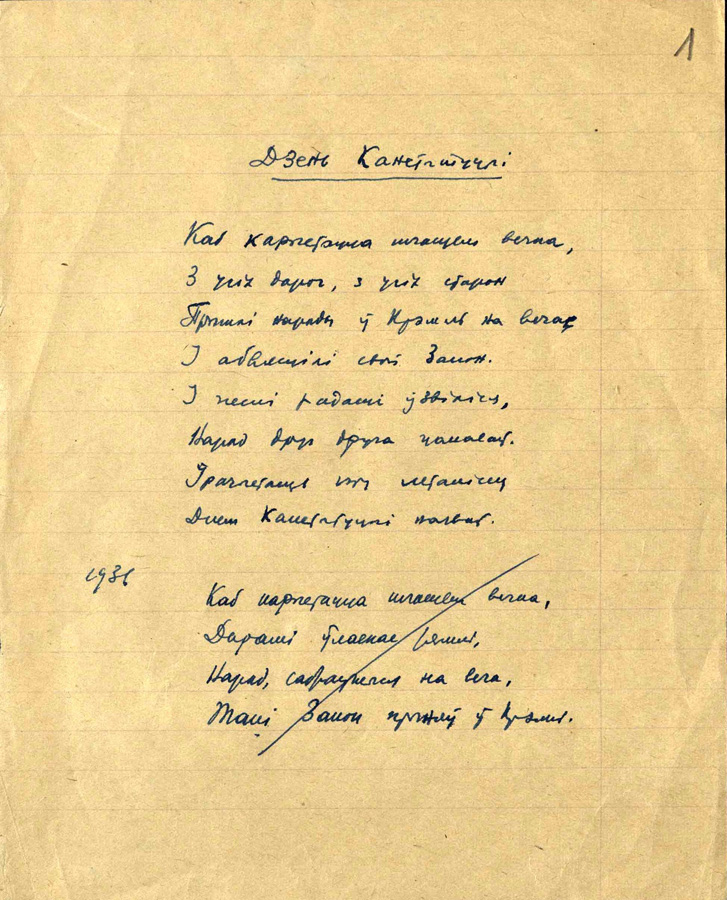 1
Дзень Канстытуцыі
Каб карыстацца шчасцем вечна,
З усіх дарог, з усіх старон
Прыйшлі народы ў Крэмль на веча
І абвясцілі свой Закон.
І песні радасці ўзвіліся,
Народ друг друга цалаваў.
І рачыстасць у летапісу
Днем Канстытуцыі назваў.
1936
Каб карыстацца шчасцем вечна,
Дарогамі ўласнае зямлі,
Народ, сабраўшыся на веча,
Такі Закон прыняў ў Крэмлі.